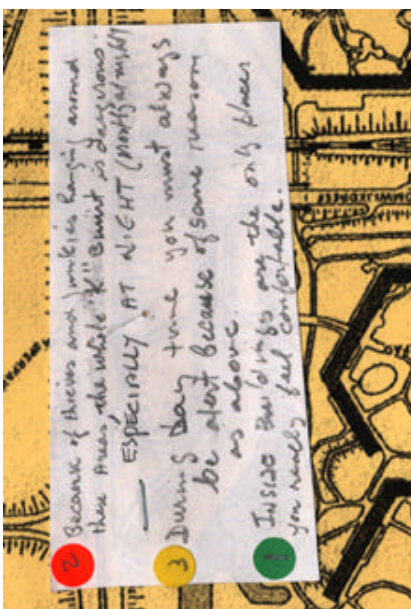 2 Because of thieves and junkies hanging around
these Areas the while "K" Buurt is dangerous.
— ESPECIALLY AT NIGHT (mostly at night)
3 During Day time you must always
be alert because of same reason
as above.
1 INSIDE Buildings are the only places
you feel comfortable.